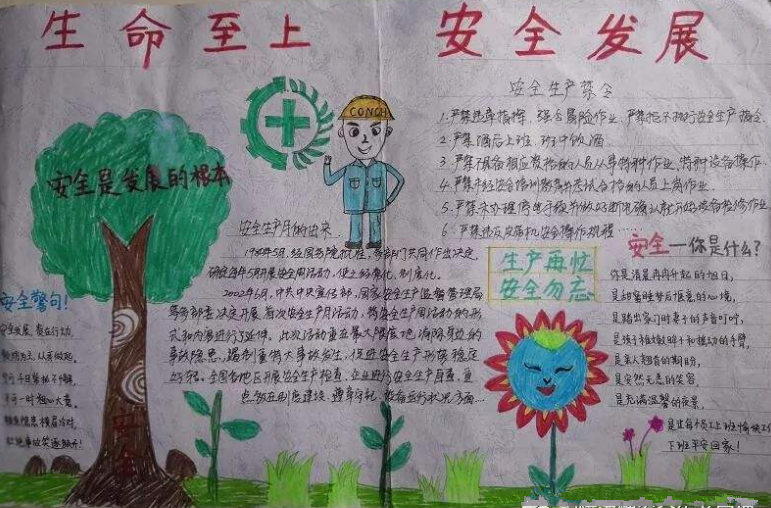 生命至上 安全发展
安全生产禁令
1.严禁违章指挥、强令冒险作业、严禁拒不执行安全生产指令.
2.严禁酒后上班、班中饮酒
3.严禁不具备相应资格的人员从事特种作业、特种设备操作
4.严禁未经安全培训教育并考试合格的人员上岗作业
5.严禁未办理停电手续并做好断电确认就开始设备检修作业
6.严禁违反 机安全操作规程……
CONCH
安全是发展的根本
安全生产月的由来
1980年5月,经国务院批准, 部门共同作出决定,
确定每年5月开展安全周活动,使之经常化、制度化。
2002年6月,中共中央宣传部、国家安全生产监督管理局
等 部委决定开展首次安全生产月活动,将安全生产周活动的形
式和内容进行了延伸。此次活动重在最大限度地消除身边的
事故隐患,遏制重特大事故发生,促进安全生产形势稳定
好转。全国各地区开展安全生产检查、企业进行安全生产自查,重
点 制度建设、遵章守纪、 运行状况方面…
生产再忙
安全勿忘
安全—你是什么?
你是清晨冉冉升起的旭日,
是甜蜜睡梦后惬意的心境,
是踏出家门时妻子的声音叮咛,
是孩子稚嫩 和摆动的手臂,
是亲人翘首的期盼,
是安然无恙的笑容,
是充满温馨的夜景,
是让每个员工上班愉快工作
下班平安回家!
安全警句!
安全发展,贵在行动,
预防为主,
安全